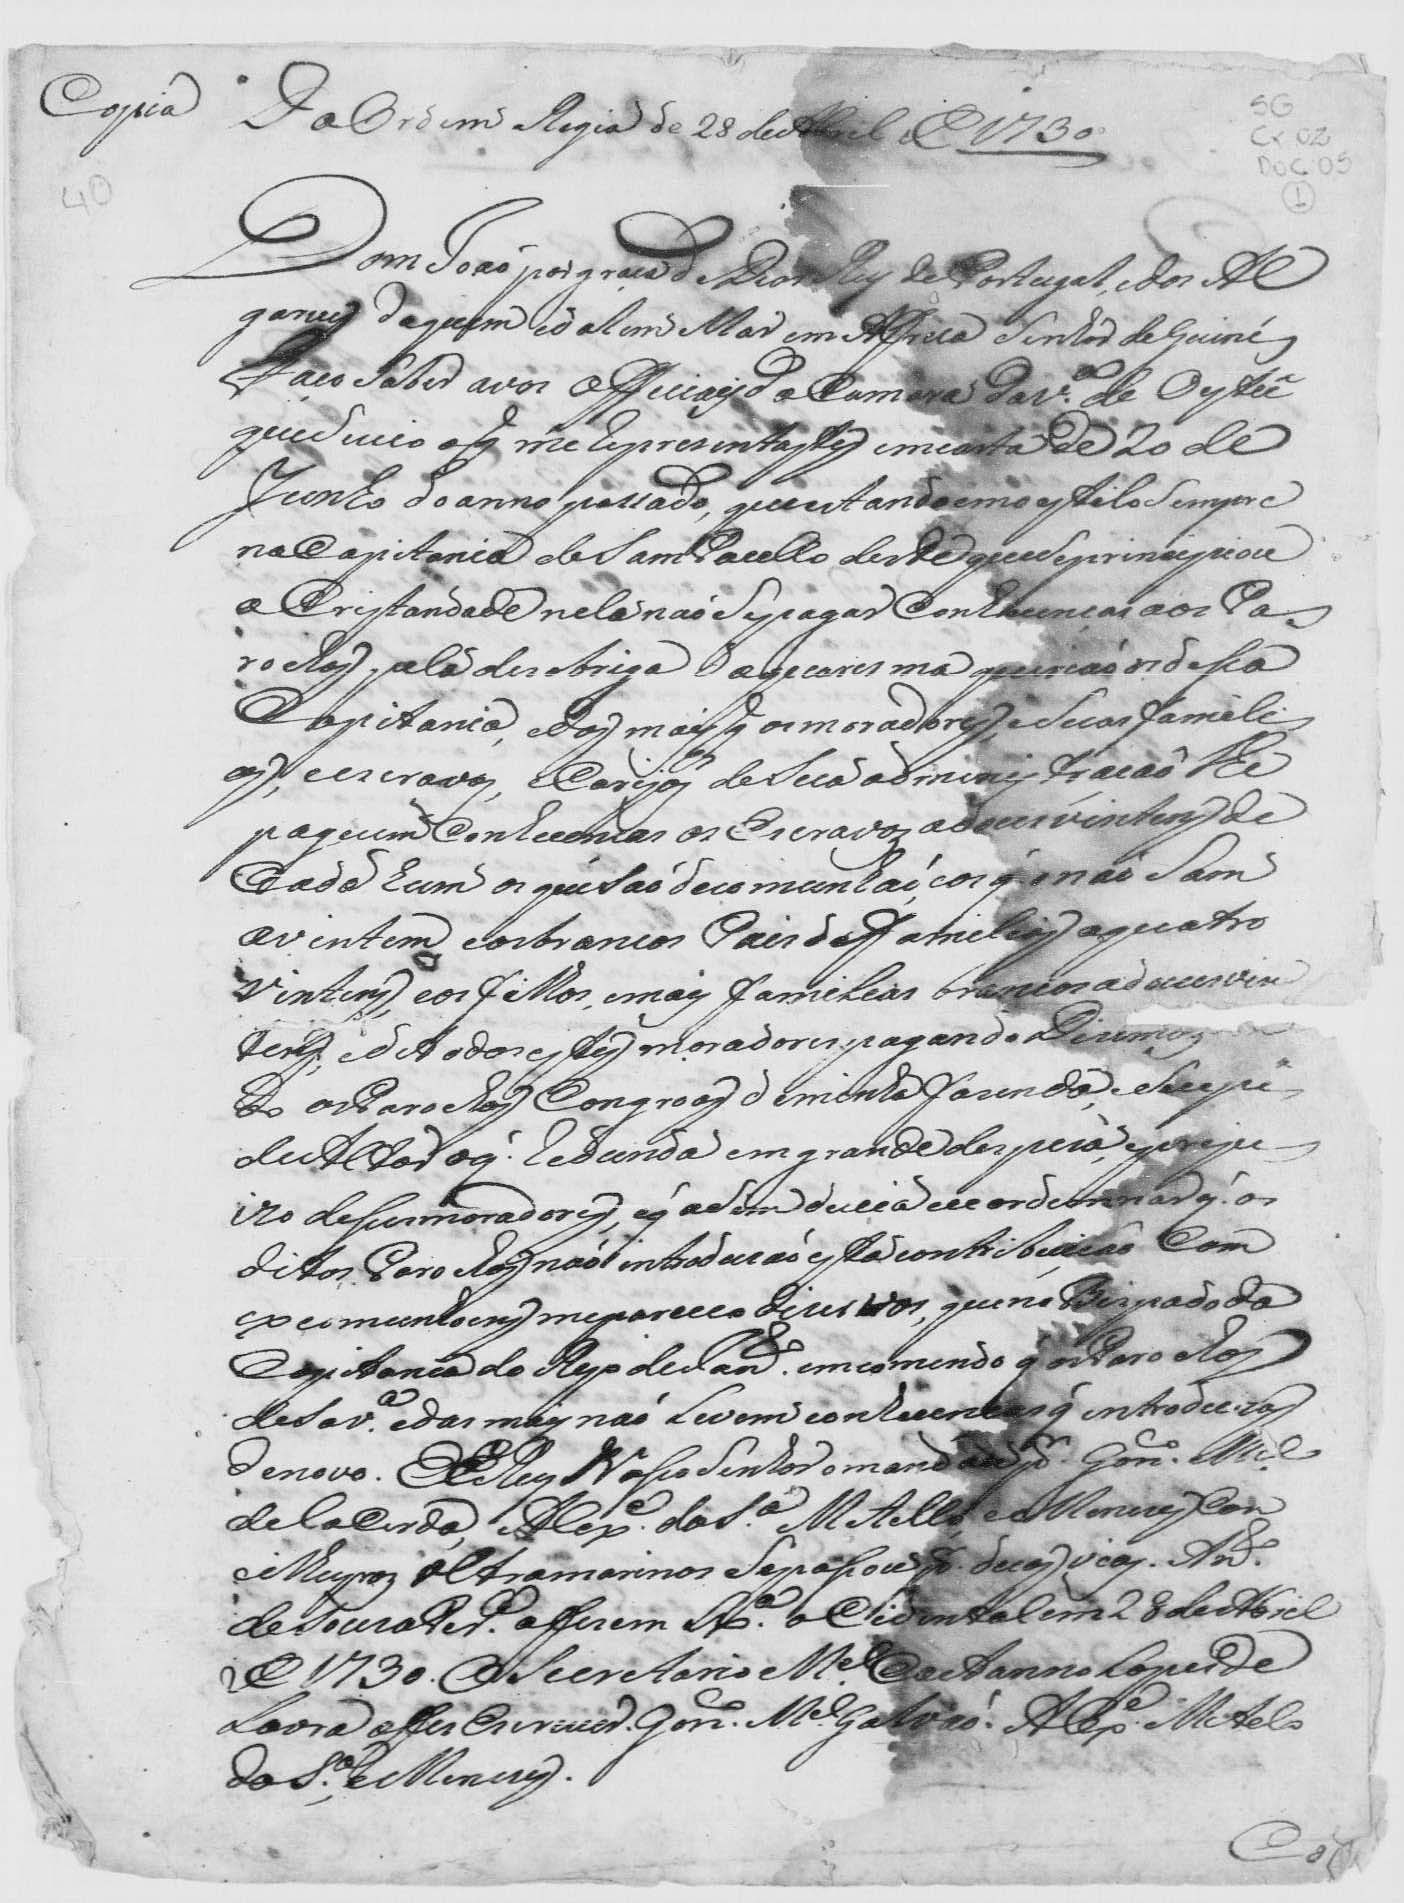 Copia Da Ordem Regia de 28 de Abril de 1730
SG
Cx 02
DOC 05
1
40
Dom João por graça de Deos Rey de Portugal, e dos Al
garues daquem e dalem Mar em Affrica Senhor de Guiné
Faço Saber avos Officiays da Camara da v.ª de Oytũ
que se uio o q̃ me Representastes em carta de 20 de
Junho do anno passado, que estando em estilo Sempre
na Capitania de Sam Paullo desde que se principiou
a Cristandade nela naõ Se pagar Conhecenças aos Pa
rochos pela desobriga da quaresma queriaõ os desta
Capitania, e dos mais q̃ os moradores, e Suas familli
as, e escravos, e Carijos de Sua administraçaõ lhe
paguem Conhecenças os Escravos a dous vintens de
Cada hum os que saõ de comunhaõ, e os q̃ o naõ Sam
a vintem, e os brancos Pais de Familias a quatro
vintens, e os filhos, e mais familias brancos a dous vin
tens, e de todos estes moradores pagando Disimos
os Parochos Congroas de minha fazenda, e Se o pe
de Altar o q̃ Redunda em grande despesa, e prejui
izo desses moradores, e q̃ asim devia eu ordennar q̃ os
ditos Parochos naõ introdusaõ esta contribuiçaõ Com
excomunhoens me pareceo dizer vos, que no Bispado da
Capitania do Ryo de Jan.ro emcomendo q̃ os Parochos
dessa v.ª e das mais naõ Levem conhecenças q̃ introduziraõ
de novo. El Rey Nosso Senhor o mandou p.r Gon.º M.el
de laCerda, e Alex.e da S.ª Metello e Menezes Con
celheyros Vltramarinos Se passou p.r duas vias. An.to
de Souza Per.ª a fes em Lx.ª o Cidental em 28 de Abril
de 1730. O Secretario M.el Caetanno Lopes de
Lavra a fes Escrever. Gon.º M.el Galvaõ. Alex.e Metelo
da S.ª e Menezes.